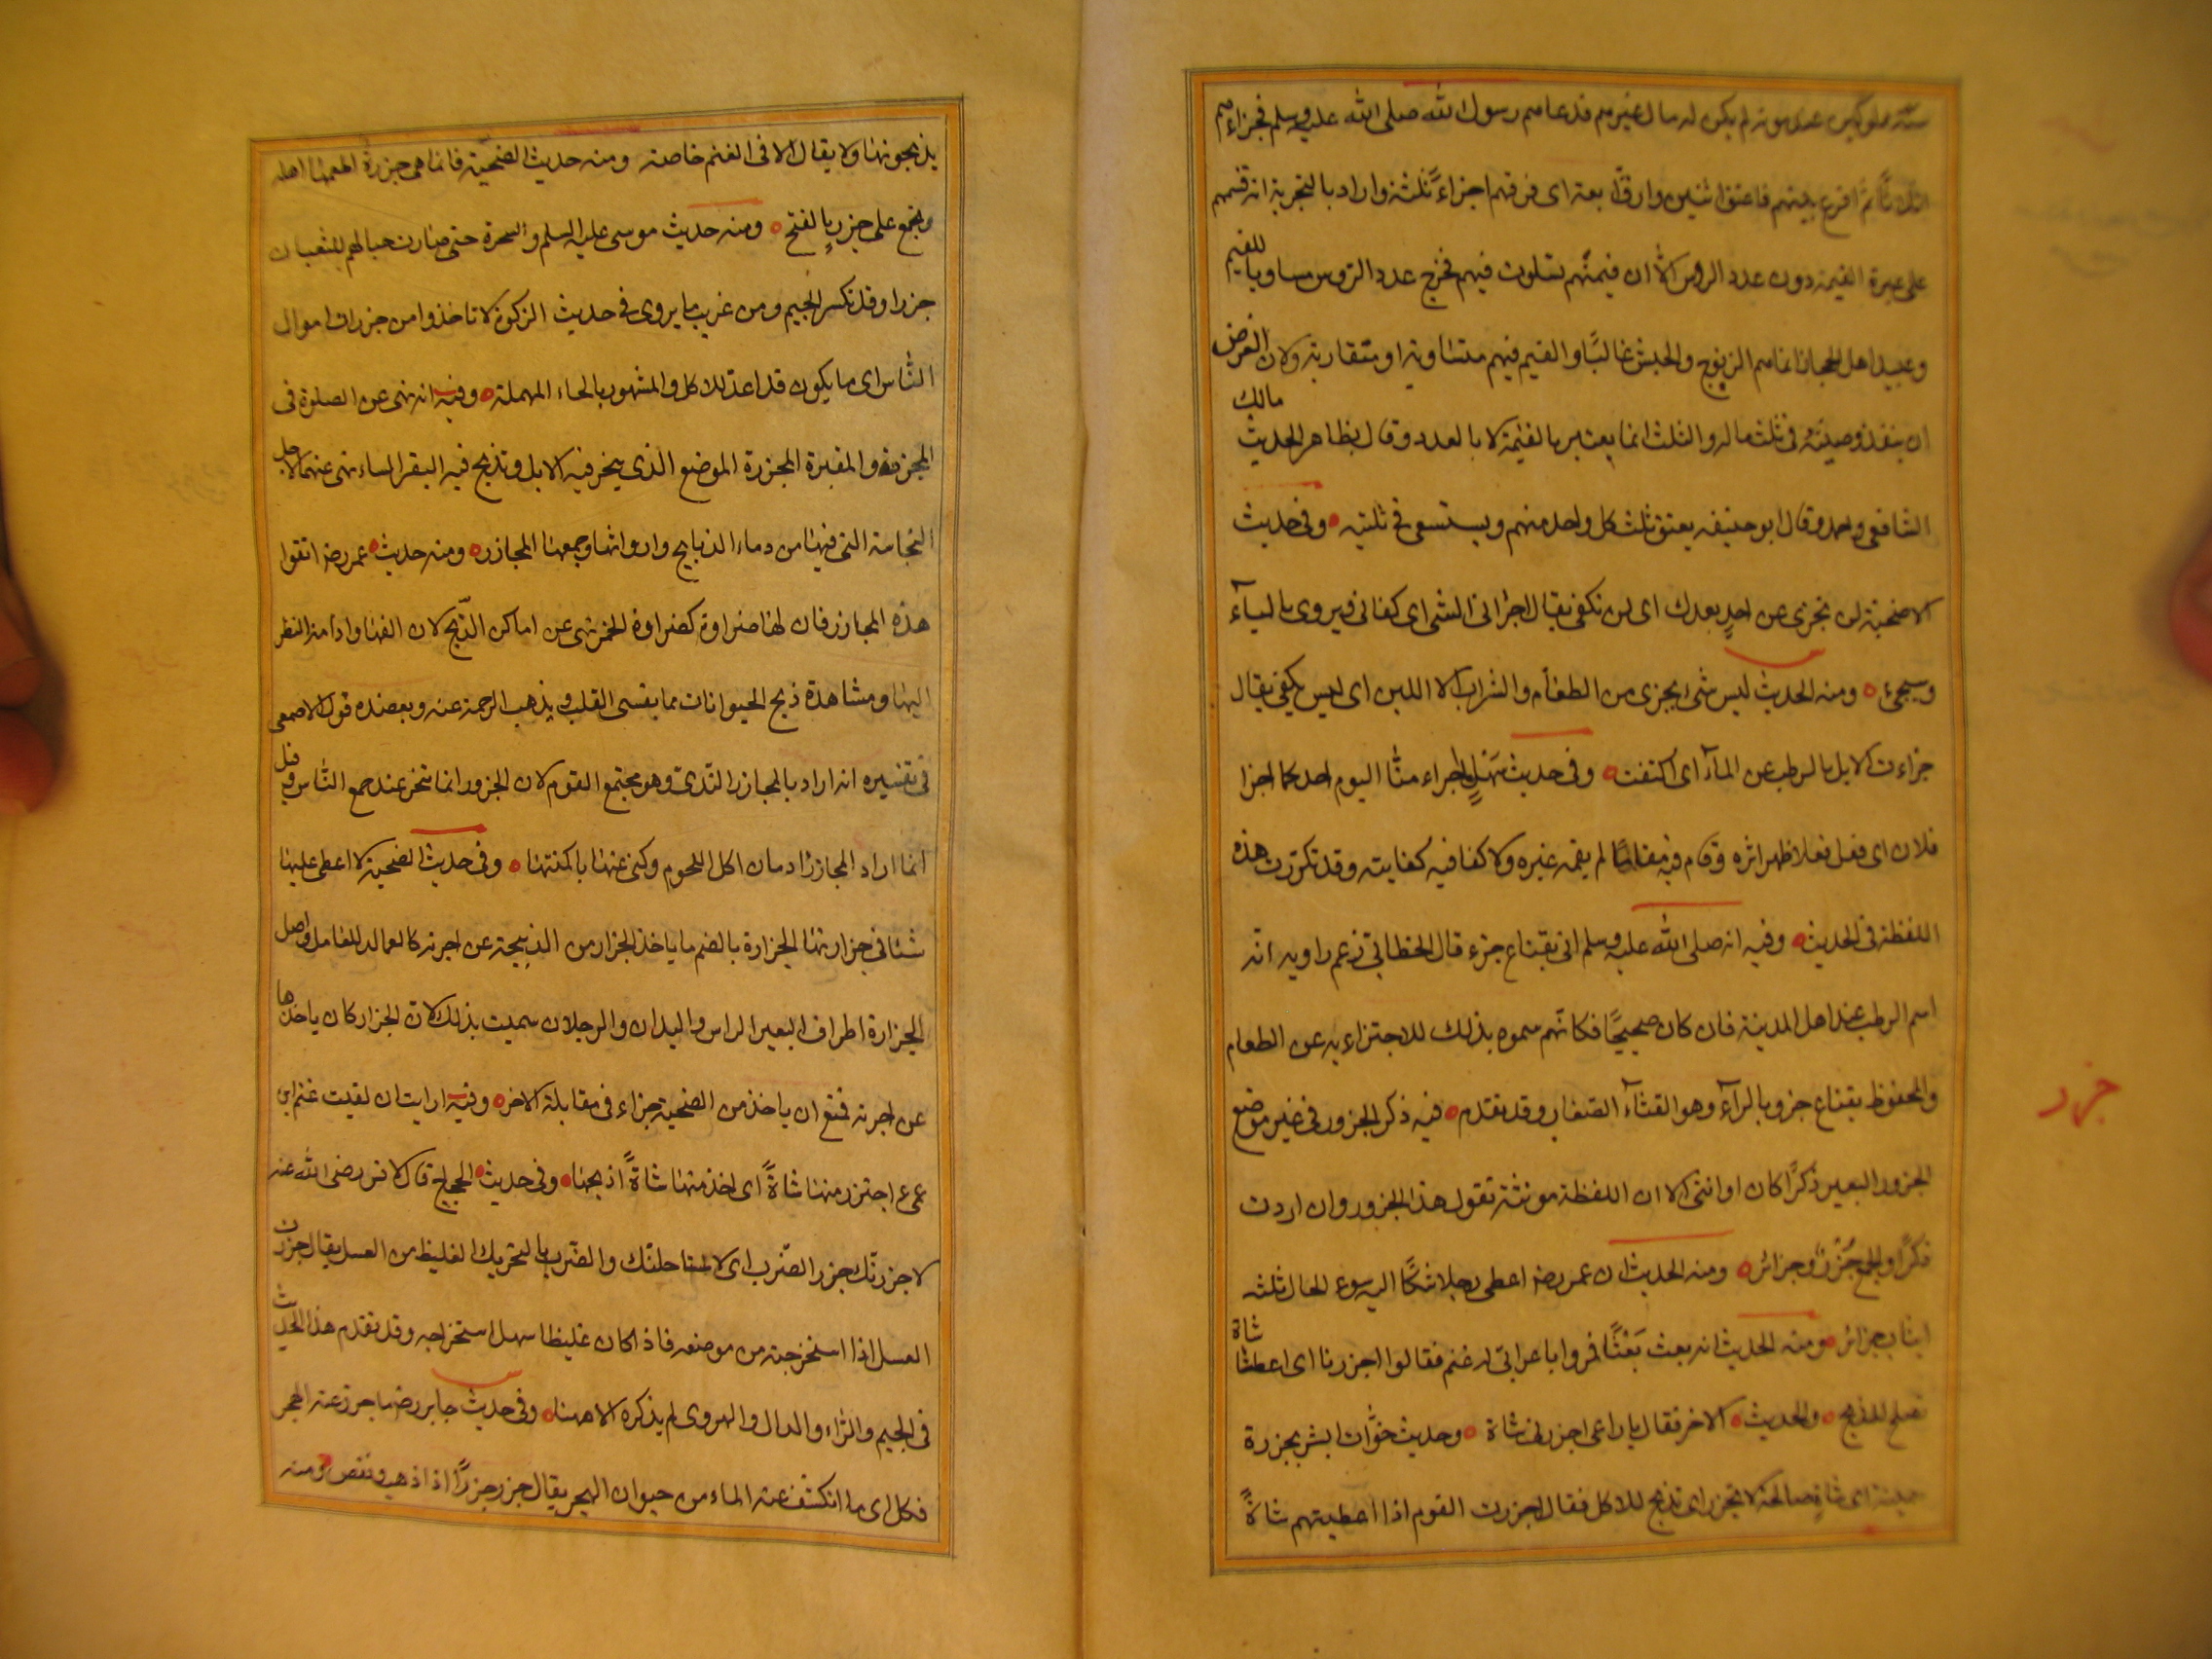 ستة مملوكين عند موته لم يكن له مال غيرهم فدعاهم رسول الله صلى الله عليه وسلم فجزاءهم
اثلاثًا ثم اقرع بينهم فاعتق اثنين وارق اربعة اى فرقهم اجزاءً ثلثة واراد بالتجزية انه قسمهم
على عبرة القيمة دون عدد الروس الا ان قيمتهم تساوت فيهم فخرج عدد الروس مساويا للقيم
وعبيد اهل الحجاز انما هم الزنوج والحبش غالبًا والقيم فيهم متساوية او متقاربة ولان الغرض
ان ينفذ وصيته فى ثلث ماله والثلث انما يعتبر بالقيمة لا بالعدد وقال بظاهر الحديث مالك
الشافعى واحمد وقال ابو حنيفه يعتق ثلث كل واحد منهم ويستسعى فى ثلثيه وفى حديث
الاضحية لن تجزى عن احدٍ بعدك اى لن تكفى يقال اجزانى الشى اى كفانى ويروى بالياء
وسيجىء ومنه الحديث ليس شى يجزى من الطعام والشراب الا اللبن اى ليس يكفى يقال
جزاءت الابل بالرطب عن الماء اى اكتفت وفى حديث سهلٍ ما اجزاء منا اليوم احد كما اجزا
فلان اى فعل فعلا ظهر اثره وقام فيه مقاما لم يقمه غيره ولا كفا فيه كفايته وقد تكررت هذه
اللفظة فى الحديث وفيه انه صلى الله عليه وسلم اتى بقناع جزء قال الخطابى زعم راويه انه
اسم الرطب عند اهل المدينة فان كان صحيحًا فكانهم سموه بذلك للاجتزاء به عن الطعام
والمحفوظ بقناع جرو بالراء وهو القثاء الصغار وقد تقدم فيه ذكر الجزور فى غير موضع
جزر
الجزور البعير ذكرًا كان او انثى الا ان اللفظة مونثة تقول هذا الجزور وان اردت
ذكرًا والجمع جُزُر وجزائر ومنه الحديث ان عمر رضه اعطى رجلا شكا اليه سوء الحال ثلثه
انياب جزائر ومنه الحديث انه بعث بَعْثًا فمروا باعرابى له غنم فقالوا اجزرنا اى اعطنا شاة
تصلح للذبح والحديث الاخر فقال يا راعى اجزرنى شاة وحديث خوّات ابشر بجزرة
سمينة اى شاةٍ صالحة لا تجزر اى تذبح للاكل فقال اجزرت القوم اذا اعطيتهم شاةً
يذبحونها ولا يقال الا فى الغنم خاصة ومنه حديث الضحية فانما هى جزرة اطعمها اهله
ويجمع على جزر بالفتح ومنه حديث موسى عليه السلم والسحرة حتى صارت حبالهم للثعبان
جزرا وقد تكسر الجيم ومن غريب ما يروى فى حديث الزكوة لا تاخذوا من جزرات اموال
الناس اى ما يكون قد اعد للاكل والمشهور بالحاء المهملة وفيه انه نهى عن الصلوة فى
المجزرة والمقبرة المجزرة الموضع الذى ينحر فيه الابل وتذبح فيه البقر والساء نهى عنهما لاجل
النجاسة التى فيها من دماء الذبايح وارواثها وجمعها المجازر ومنه حديث عمر رضه اتقوا
هذه المجازر فان لها ضراوة كضراوة الخمر نهى عن اماكن الذبح لان الفها وادامة النظر
اليها ومشاهدة ذبح الحيوانات مما يقسى القلب ويذهب الرحمة عنه ويعضده قول الاصمعى
فى تفسيره انه اراد بالمجازر الندىّ وهو مجتمع القوم لان الجزور انما تنحر عند جمع الناس وقيل
انما اراد المجازر ادمان اكل اللحوم وكنى عنها بامكنتها وفى حديث الضحية لا اعطى عليها
شئا فى جزارتها الجزارة بالضم ما ياخذ الجزار من الذبيحة عن اجرته كالعمالة للعامل واصل
الجزارة اطراف البعير الراس واليدان والرجلان سميت بذلك لان الجزار كان ياخذها
عن اجرته فمنع ان ياخذ من الضحية جزاء فى مقابلة الاخره وفيه ارايت ان لقيت غنم ابن
عمى ء اجتزر منها شاةً اى اخذ منها شاةً اذبحها وفى حديث الحجاج قال لانس رضى الله عنه
لاجزرنك جزر الضرب اى لاستاصلنك والضرب بالتحريك الغليظ من العسل يقال جزرت
العسل اذا استخرجته من موضعه فاذا كان غليظا سهل استخراجه وقد تقدم هذا الحديث
فى الجيم والراء والدال والهروى لم يذكره الا ههنا وفى حديث جابر رضه ما جزر عنه البحر
فكل اى ما انكشف عنه الماء من حيوان البحر يقال جزر جزرًا اذا ذهب ونقص ومنه